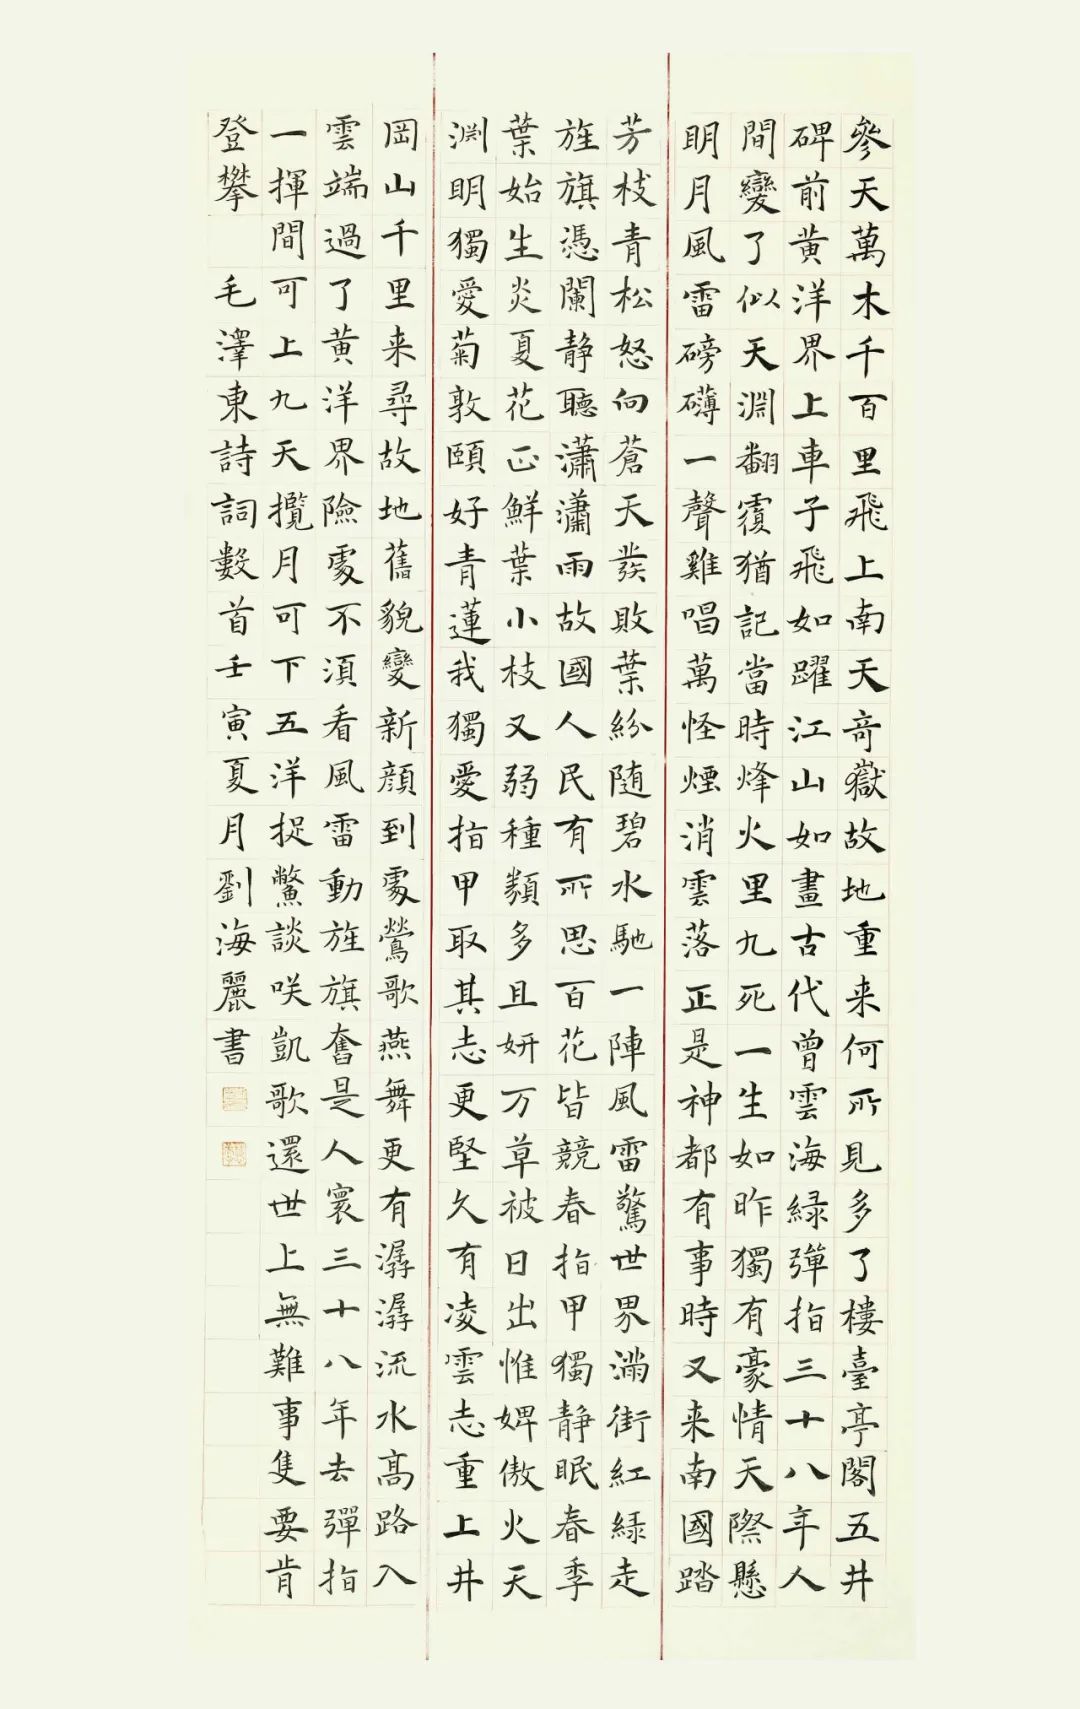 參天萬木千百里飛上南天奇嶽故地重来何所見多了樓臺亭閣五井
碑前黃洋界上車子飛如躍江山如畫古代曾雲海緑彈指三十八年人
間變了似天淵翻覆猶記當時烽火里九死一生如昨獨有豪情天際懸
明月風雷磅礴一聲雞唱萬怪煙消雲落正是神都有事時又来南國踏
芳枝青松怒向蒼天發敗葉紛随碧水馳一陣風雷驚世界滿街紅緑走
旌旗憑闌静聽瀟瀟雨故國人民有所思百花皆競春指甲獨静眠春季
葉始生炎夏花正鮮葉小枝又弱種類多且妍万草被日出惟婢傲火天
淵明獨愛菊敦頤好青蓮我獨愛指甲取其志更堅久有凌雲志重上井
岡山千里来尋故地舊貌變新顔到處鶯歌燕舞更有潺潺流水高路入
雲端過了黃洋界險處不須看風雷動旌旗奮是人寰三十八年去彈指
一揮間可上九天攬月可下五洋捉鱉談咲凱歌還世上無難事隻要肯
登攀 毛澤東詩詞數首壬寅夏月劉海麗書